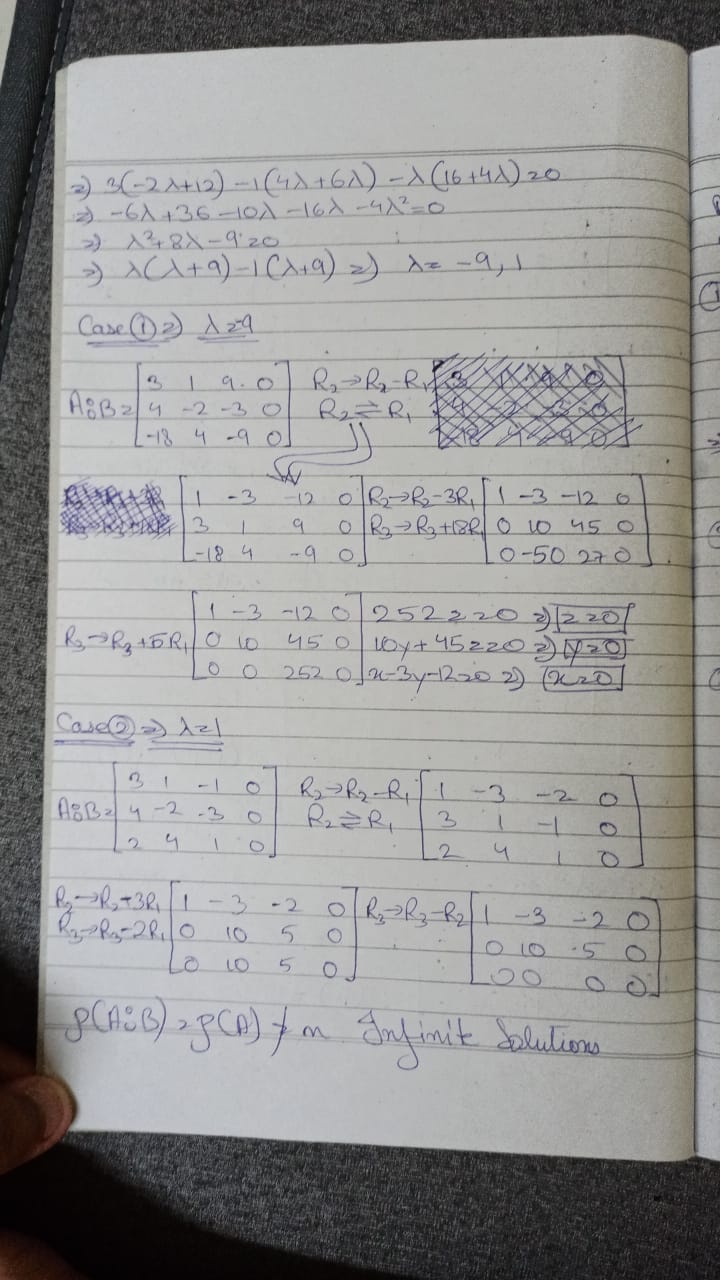 ⇒ 3(-2λ+12) -1(4λ+6λ) -λ(16+4λ)=0
⇒ -6λ+36-10λ-16λ-4λ²=0
⇒ λ²+8λ-9=0
⇒ λ(λ+9)-1(λ+9) ⇒ λ= -9, 1
Case ① ⇒ λ=-9
A:B = [3 1 9 0; 4 -2 -3 0; -18 4 -9 0] R₂→R₂-R₁ R₂⇌R₁
[1 -3 -12 0; 3 1 9 0; -18 4 -9 0] R₂→R₂-3R₁ R₃→R₃+18R₁ [1 -3 -12 0; 0 10 45 0; 0 -50 27 0]
R₃→R₃+5R₁ [1 -3 -12 0; 0 10 45 0; 0 0 252 0] 252z=0 ⇒ z=0
10y+45z=0 ⇒ y=0
x-3y-12=0 ⇒ x=0
Case ② ⇒ λ=1
A:B = [3 1 -1 0; 4 -2 -3 0; 2 4 1 0] R₂→R₂-R₁ R₂⇌R₁ [1 -3 -2 0; 3 1 -1 0; 2 4 1 0]
R₂→R₂+3R₁ R₃→R₃-2R₁ [1 -3 -2 0; 0 10 5 0; 0 10 5 0] R₃→R₃-R₂ [1 -3 -2 0; 0 10 5 0; 0 0 0 0]
ρ(A:B) = ρ(A) ≠ n Infinite Solutions